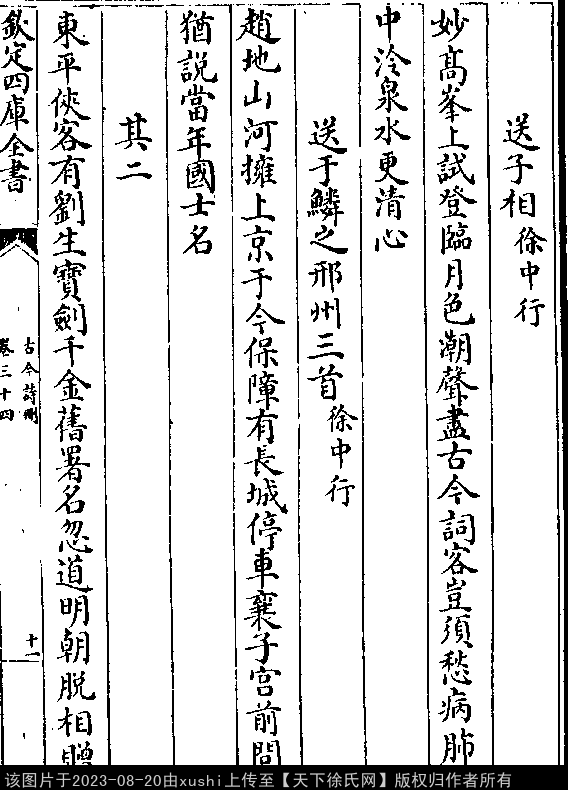 送子相徐中行
妙髙峯上試登臨月色潮聲盡古今詞客豈須愁病肺
中泠泉水更清心
送于鱗之邢州三首徐中行
趙地山河擁上京于今保障有長城停車襄子宫前問
猶説當年國士名
其二
東平俠客有劉生寶劍千金舊署名忽道明朝脱相贈
欽定四庫全書
古今詩刪
卷三十四
十一
该图片于2023-08-20由xushi上传至【天下徐氏网】版权归作者所有